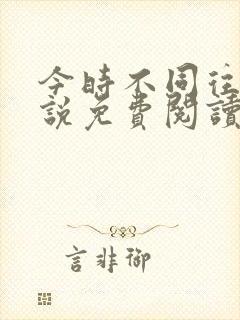 今時不同往
說免費閱讀
言非御